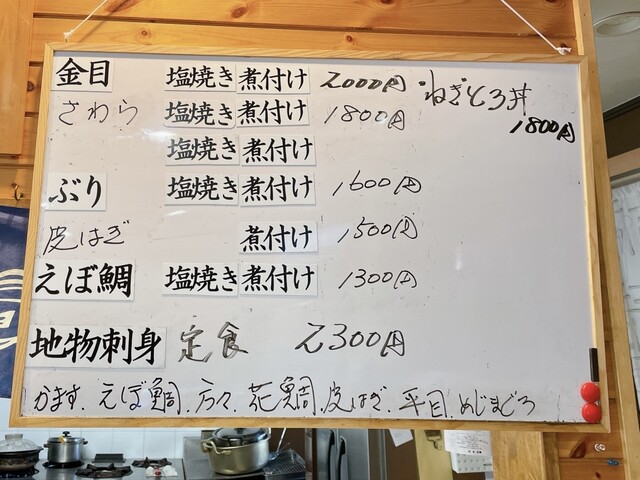 金目 塩焼き 煮付け 2000円 ・ねぎとろ丼
さわら 塩焼き 煮付け 1800円 1800円
塩焼き 煮付け
ぶり 塩焼き 煮付け 1600円
皮はぎ 煮付け 1500円
えぼ鯛 塩焼き 煮付け 1300円
地物刺身 定食 2300円
かます、えぼ鯛、方々、花鯛、皮はぎ、平目、めじまぐろ